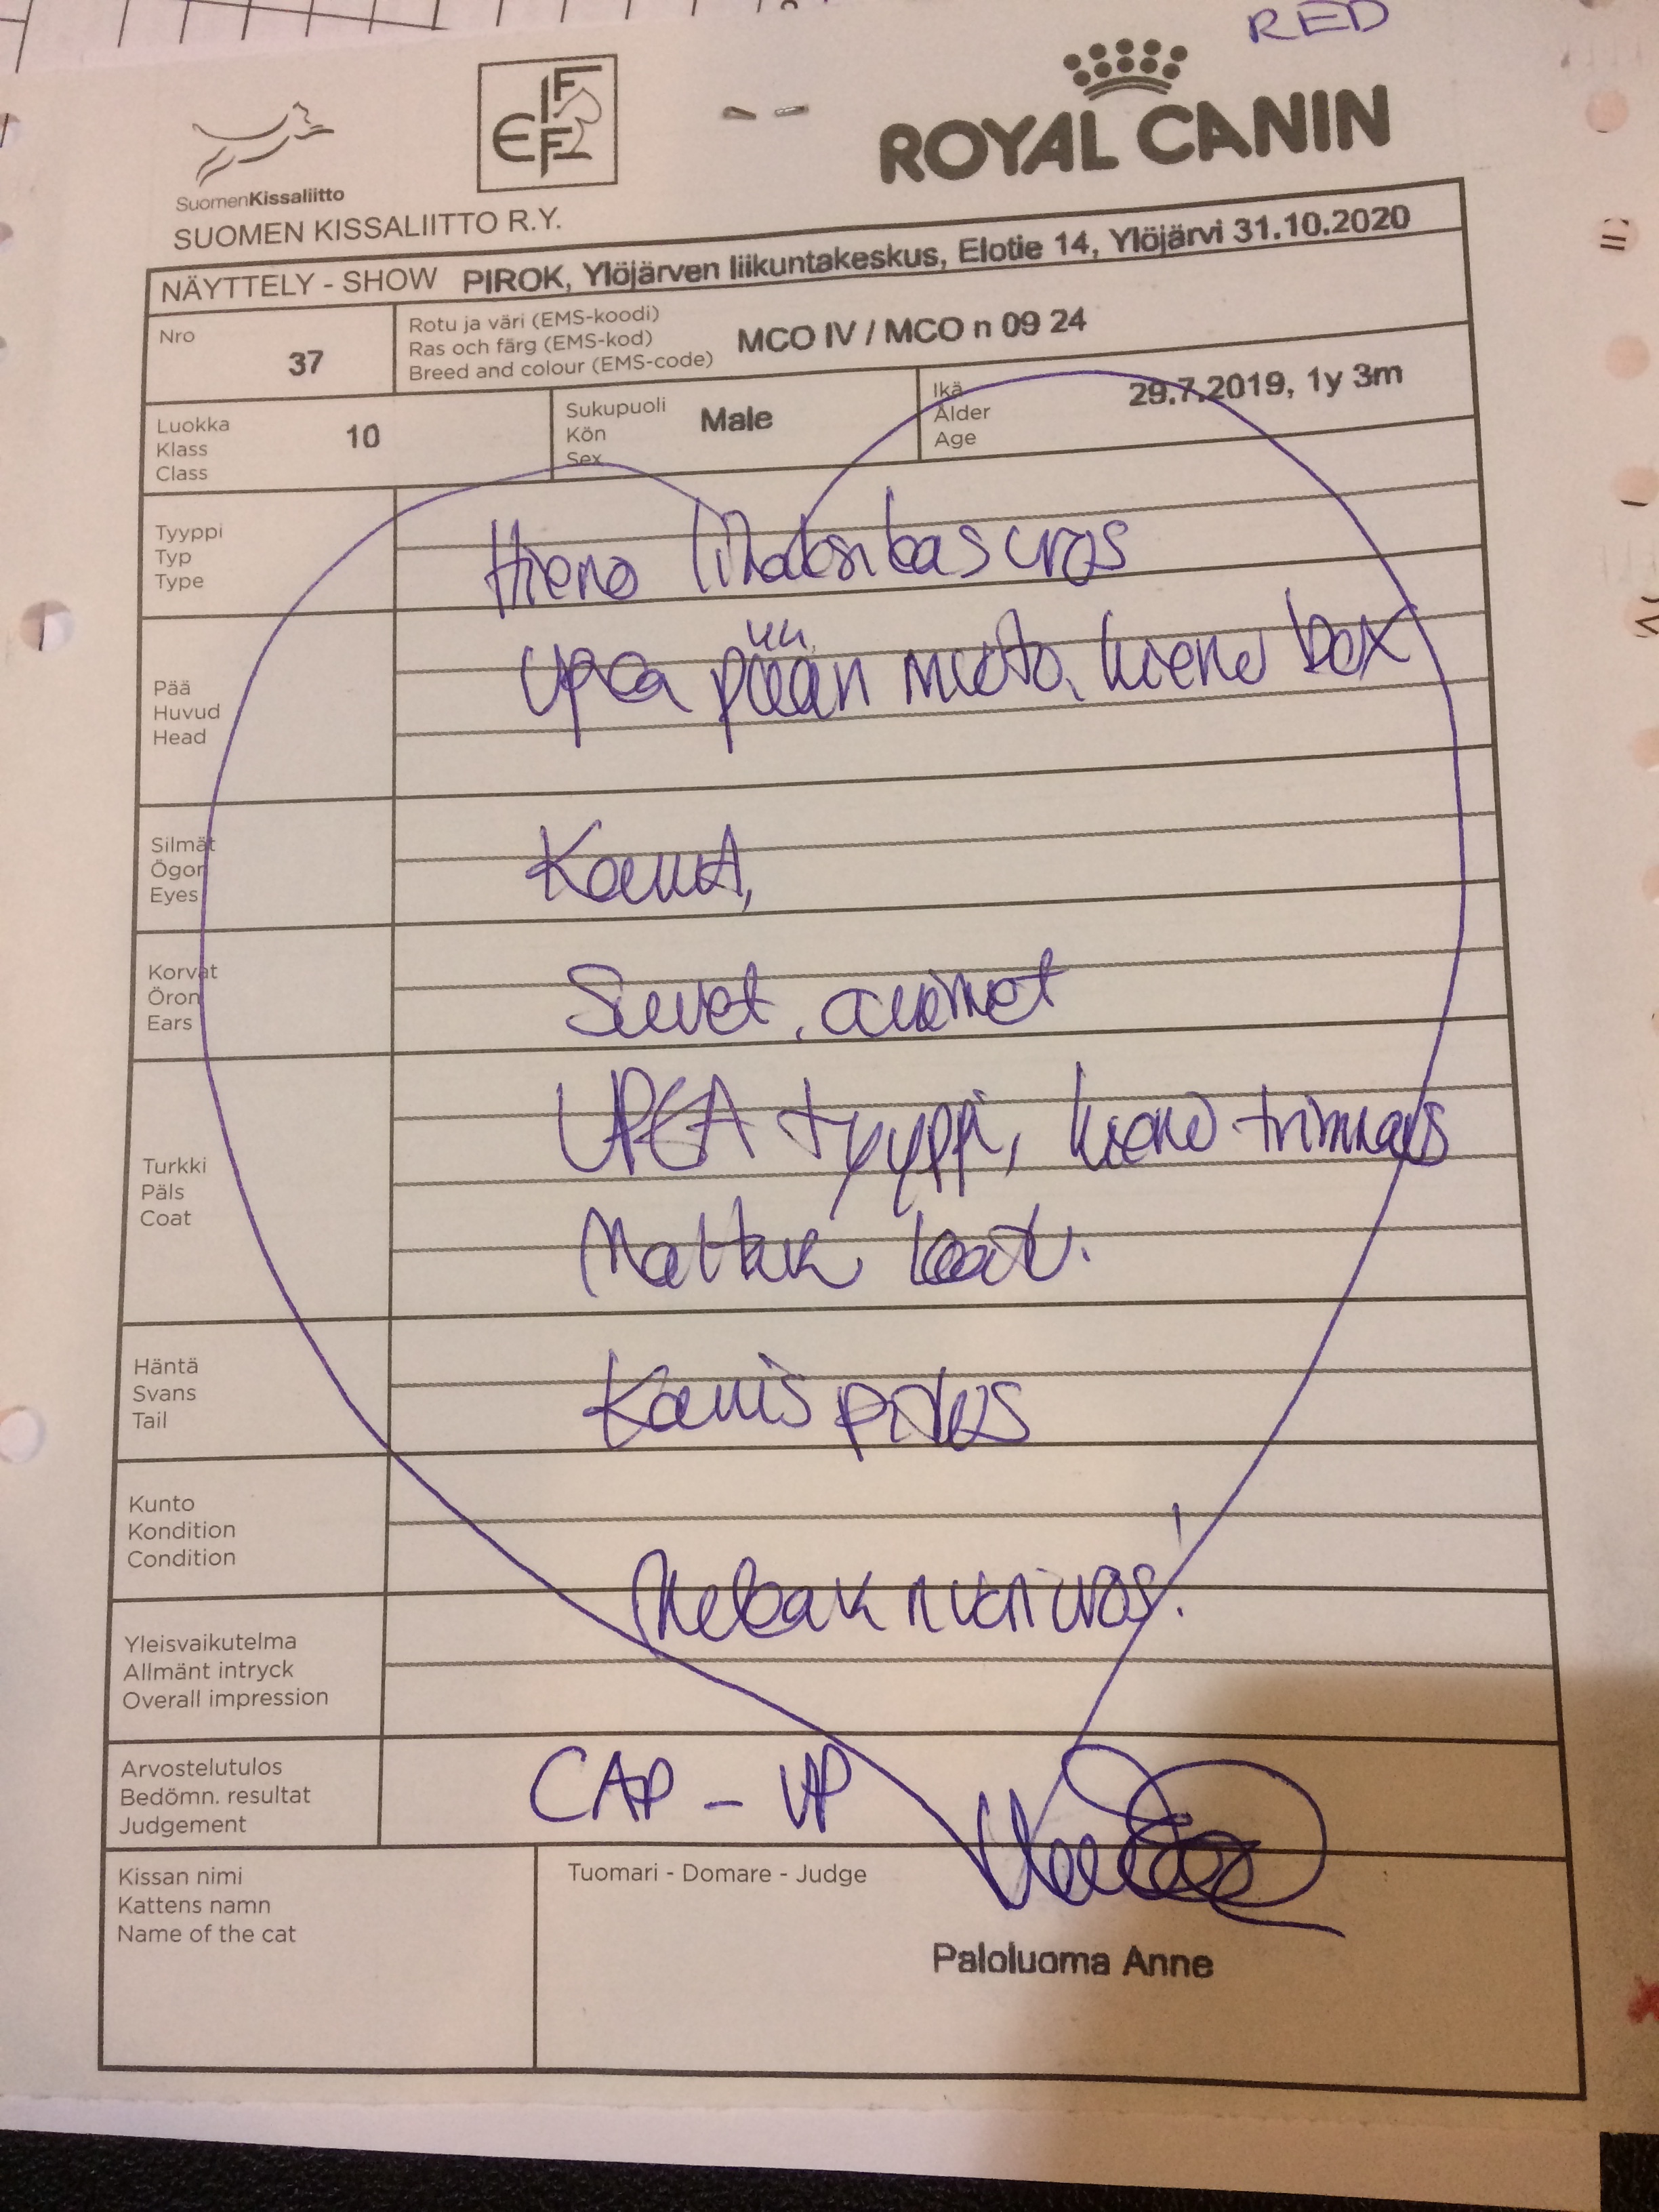 RED
SuomenKissaliitto
FIFE
ROYAL CANIN
SUOMEN KISSALIITTO R.Y.
NÄYTTELY - SHOW PIROK, Ylöjärven liikuntakeskus, Elotie 14, Ylöjärvi 31.10.2020
Nro
37
Rotu ja väri (EMS-koodi)
Ras och färg (EMS-kod)
Breed and colour (EMS-code)
MCO IV / MCO n 09 24
Luokka
Klass
Class
10
Sukupuoli
Kön
Sex
Male
Ikä
Ålder
Age
29.7.2019, 1y 3m
Tyyppi
Typ
Type
Hieno lihaksikas uros
Pää
Huvud
Head
Upea pään muoto, hieno box
Silmät
Ögon
Eyes
Kauniit,
Korvat
Öron
Ears
Suuret, avoimet
Turkki
Päls
Coat
UPEA tyyppi, hieno
Häntä
Svans
Tail
Kaunis pituus
Kunto
Kondition
Condition
uros!
Yleisvaikutelma
Allmänt intryck
Overall impression
Arvostelutulos
Bedömn. resultat
Judgement
CAP - VP
Kissan nimi
Kattens namn
Name of the cat
Tuomari - Domare - Judge
Paloluoma Anne